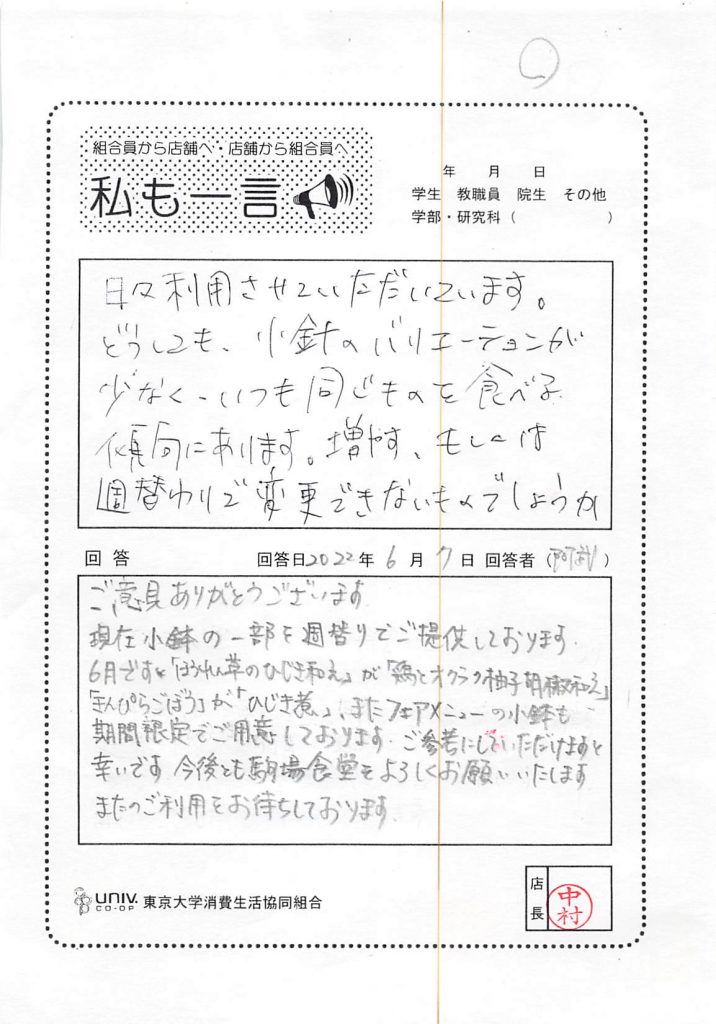 組合員から店舗へ・店舗から組合員へ
私も一言
年 月 日
学生 教職員 院生 その他
学部・研究科( )
日々利用させていただいています。
どうしても、小針のバリエーションが
少なく、いつも同じものを食べる
傾向にあります。増やす、もしくは
週替わりで変更できないものでしょうか
回答 回答日2022年6月7日 回答者( )
ご意見ありがとうございます
現在小鉢の一部を週替りでご提供しております.
6月ですと「ほうれん草のひじき和え」が「鶏とオクラの柚子胡椒和え」
「きんぴらごぼう」が「ひじき煮」、またフェアメニューの小鉢も
期間限定でご用意しております. ご参考にしていただけますと
幸いです 今後とも駒場食堂をよろしくお願いいたします
またのご利用をお待ちしております.
UNIV. CO-OP 東京大学消費生活協同組合
店長 中村